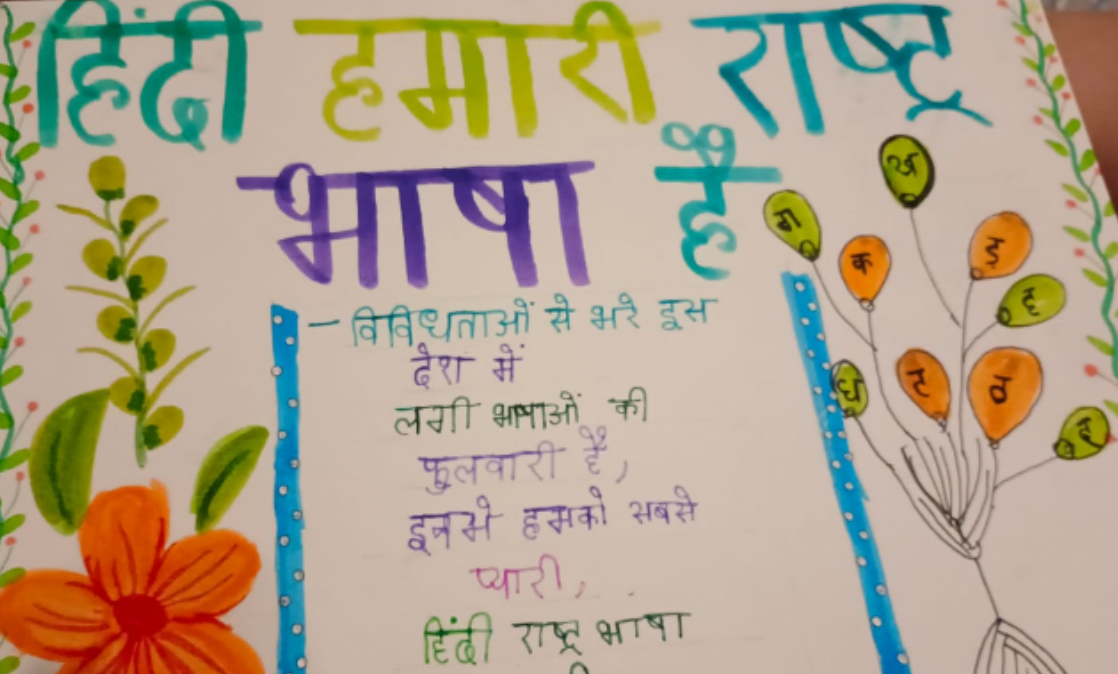 हिंदी हमारी राष्ट्र
भाषा है
– विविधताओं से भरे इस
देश में
लगी भाषाओं की
फुलवारी है,
इनमे हमको सबसे
प्यारी,
हिंदी राष्ट्र भाषा
ख
ग
क
ड़
ह
ध
ट
व
इ